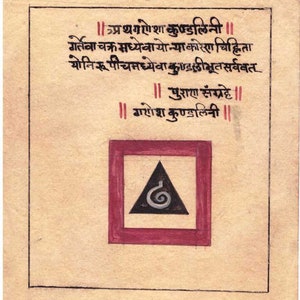 ॥ अथ गणेश कुण्डलिनी
गर्तेवा चक्र मध्येवा योन्या कारेण चिह्निता
योनिरूपी च मध्येवा कुण्डली भूत सर्ववत्
॥ पुराण संग्रहे ॥
॥ गणेश कुण्डलिनी ॥